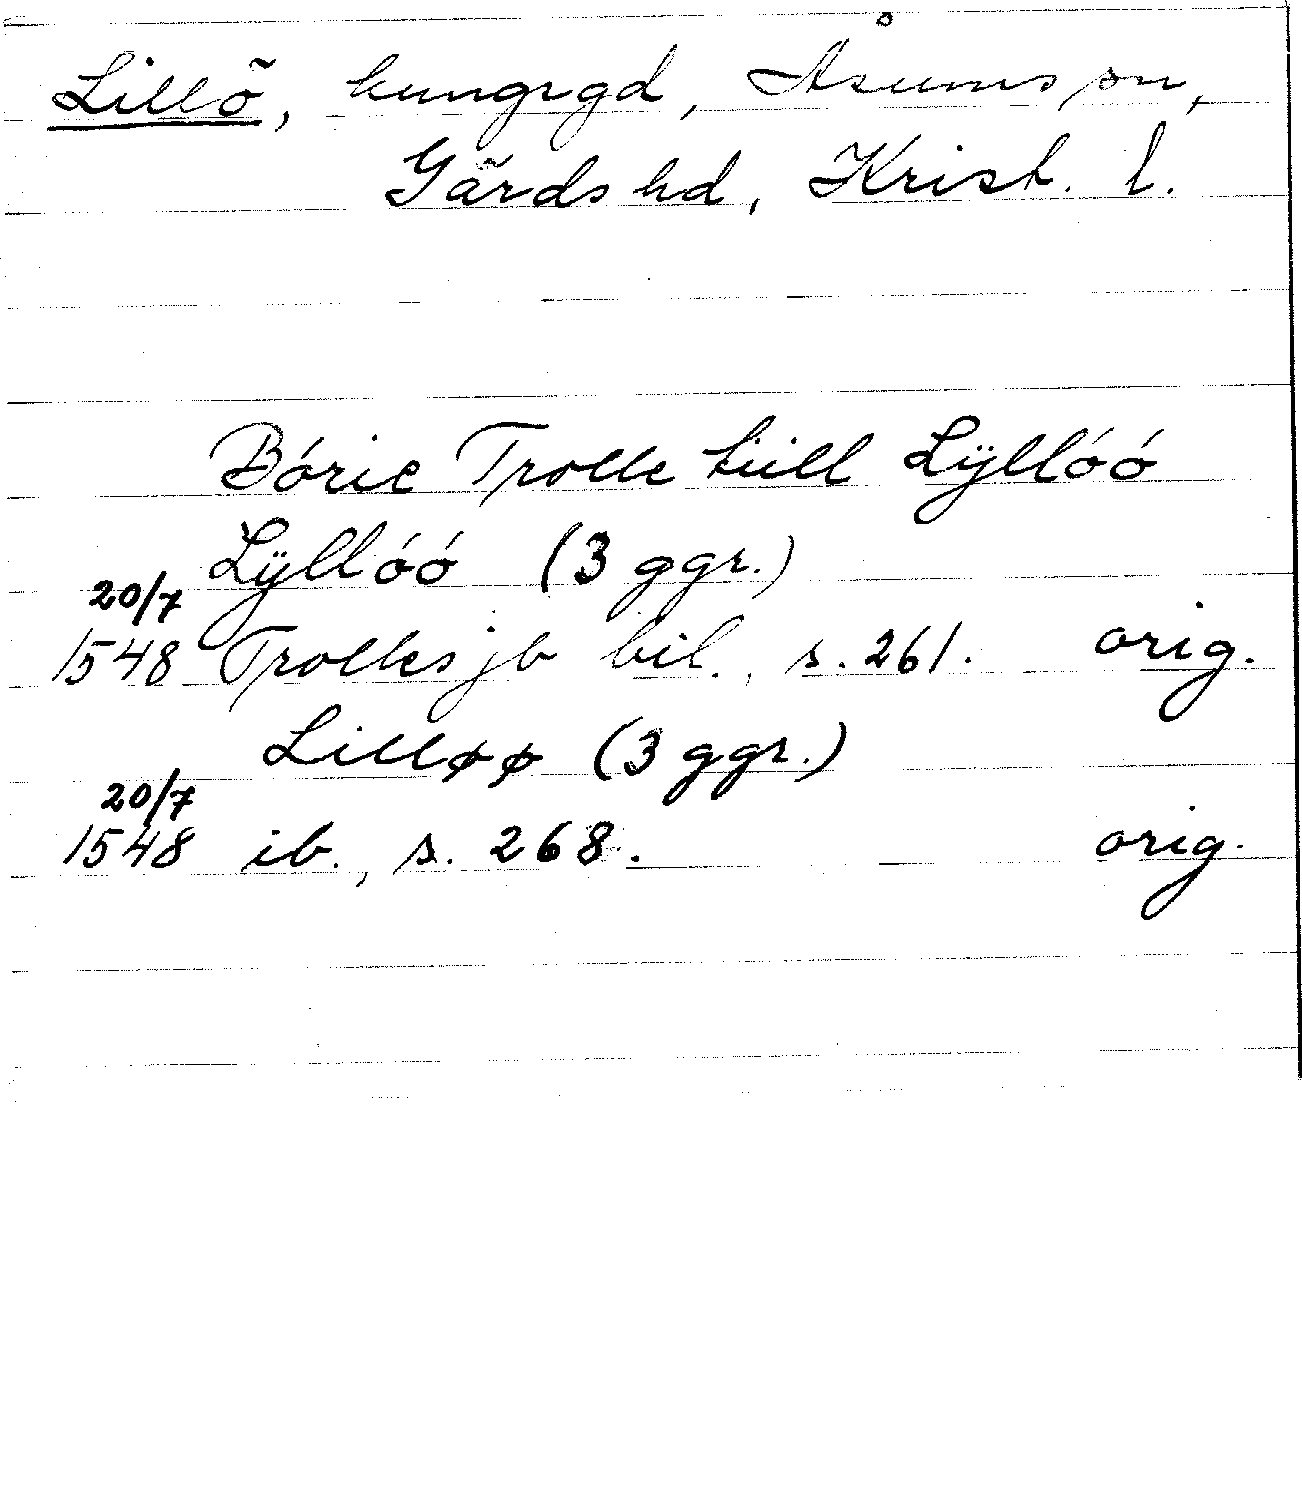 Lillö, kungsgd, Åsums sn,
Gärds hd, Krist. l.
Bóric Trolle tiill Lÿllóó
Lÿllóó (3 ggr.)
20/7
1548 Trolles jb bil., s. 261. orig.
Lilløø (3 ggr.)
20/7
1548 ib., s. 268. orig.